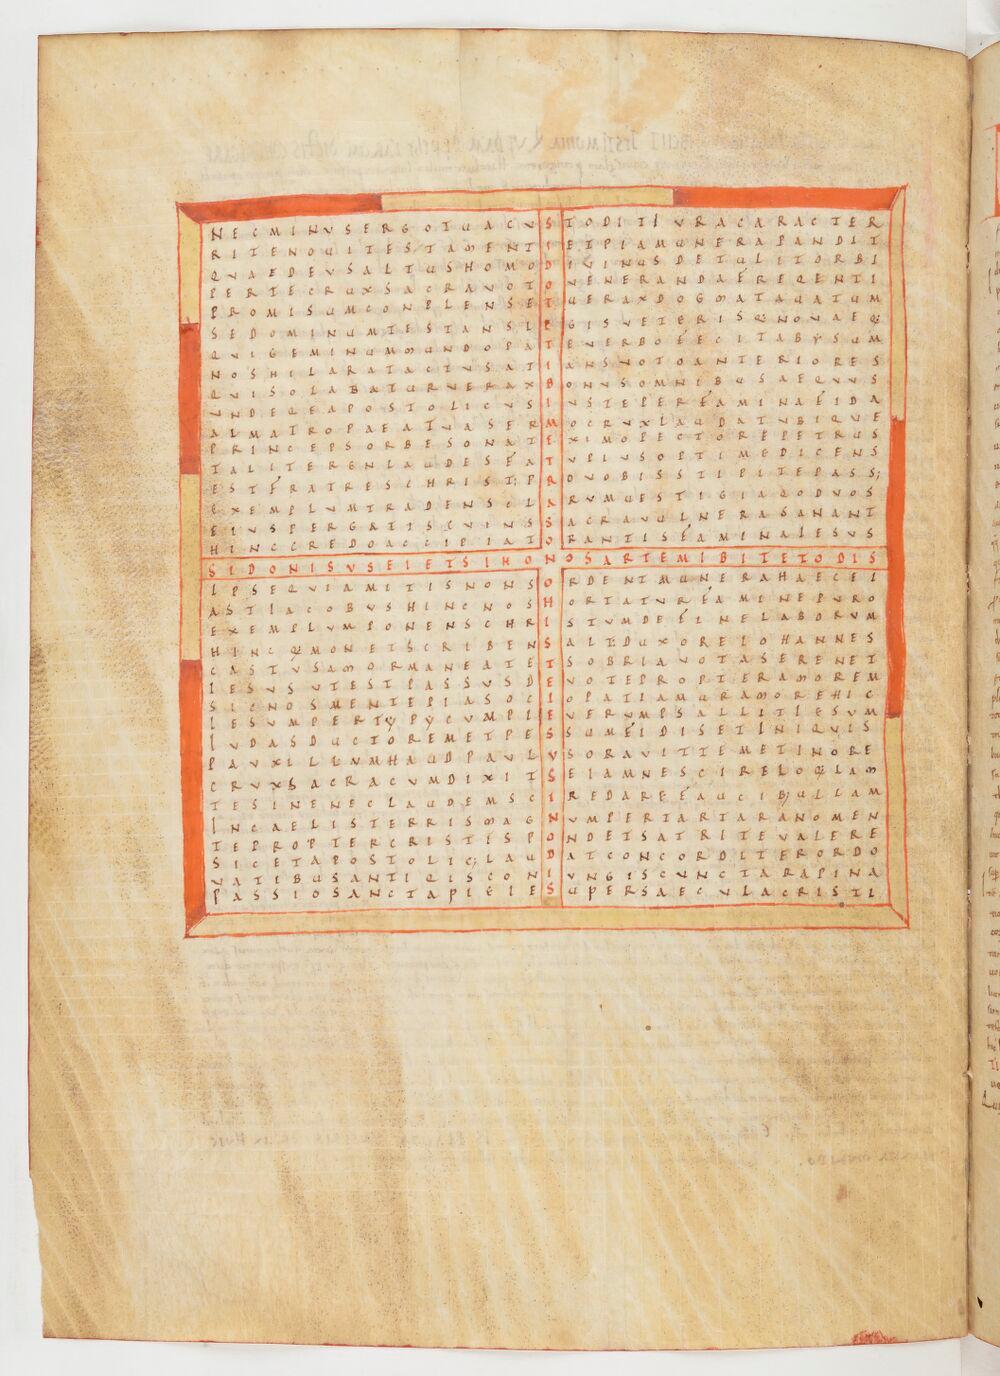 NECMINVSERGOTUACVSTODITIVRACARACTER
RITENOUITESTAMENTIETPIAMUNERAPANDIT
QVAEDEVSALTUSHOMODIVINUSDETULITORBI
PERTECRUXSACRAVOTOVENERANDAÉREQENTI
PROMISUMCONPLENSETUERAXDOGMATAUATUM
SEDOMINUMTESTANSLPGISVETERISQ:NOVAEQ:
QVIGEMINUMMUNDOPATTEVERBOÉECITABYSUM
NOSHILARATACTVSATIANSVOTOANTERIORES
QVISOLABATURVERAXBONVSOMNIBUSAEQVVS
VNDEQEAPOSTOLICVSIVSTEPERÉAMINAÉIDA
ALMATROPAEATVASERMOCRVXLAUDATVBIQVE
PRINCEPSORBESONATEXIMOPECTOREPETRUS
TALITERENLAUDESÉATVPIVSOPTIMEDICENS
ESTÉRATRESCHRIST;PRDVOBISSTIPITEPASS;
EXEMPLVMTRADENSCLARVMUESTIGIAQODVOS
EIVSPERGATISCVINSSACRAVULNERASANANT
HINCCREDOACCIPIATORANTISÉAMINALESVS
SIDONISVSEIETSIHONOSARTEMIBITETODIS
IPSEQVIAMITISNONSORDENTMUNERAHAECEI
ASTIACOBVSHINCNOSHORTATVRÉAMINEPVRO
EXEMPLVMPONENSCHRISTVMDEÉINELABORVM
HINCQMONETSCRIBENSALTDUXORELOHANNES
CASTVSAMORMANEATETSOBRIAVOTASERENET
IESVSVTESTPASSVSDEVOTEPROPTERAMOREM
SICNOSMENTEPIASOCIOPATIAMURAMOREHIC
IESVMPERTYPYCVMPIEVERVMPSALLITIESVM
IVDASDUCTOREMETPESSUMÉIDISETINIQVIS
PAVXILLVMHAUDPAVLVSORAVITTEMETINORE
CRVXSACRACVMDIXITSEIAMNESCIRELOQ:LAM
TESINENECLAUDEMSCIREDAREÉAUCIBJLLAM
INCAELISTERRISMAGNVMPERTARTARANOMEN
TEPROPTERCRISTISPONDETSATRITEVALERE
SICETAPOSTOLIC;LAUDATCONCORDITERORDO
VATIBUSANTIQISCONIVNGISCVNCTARAPINA
PASSIOSANCTAPIEIESUPERSAECVLACRISTI